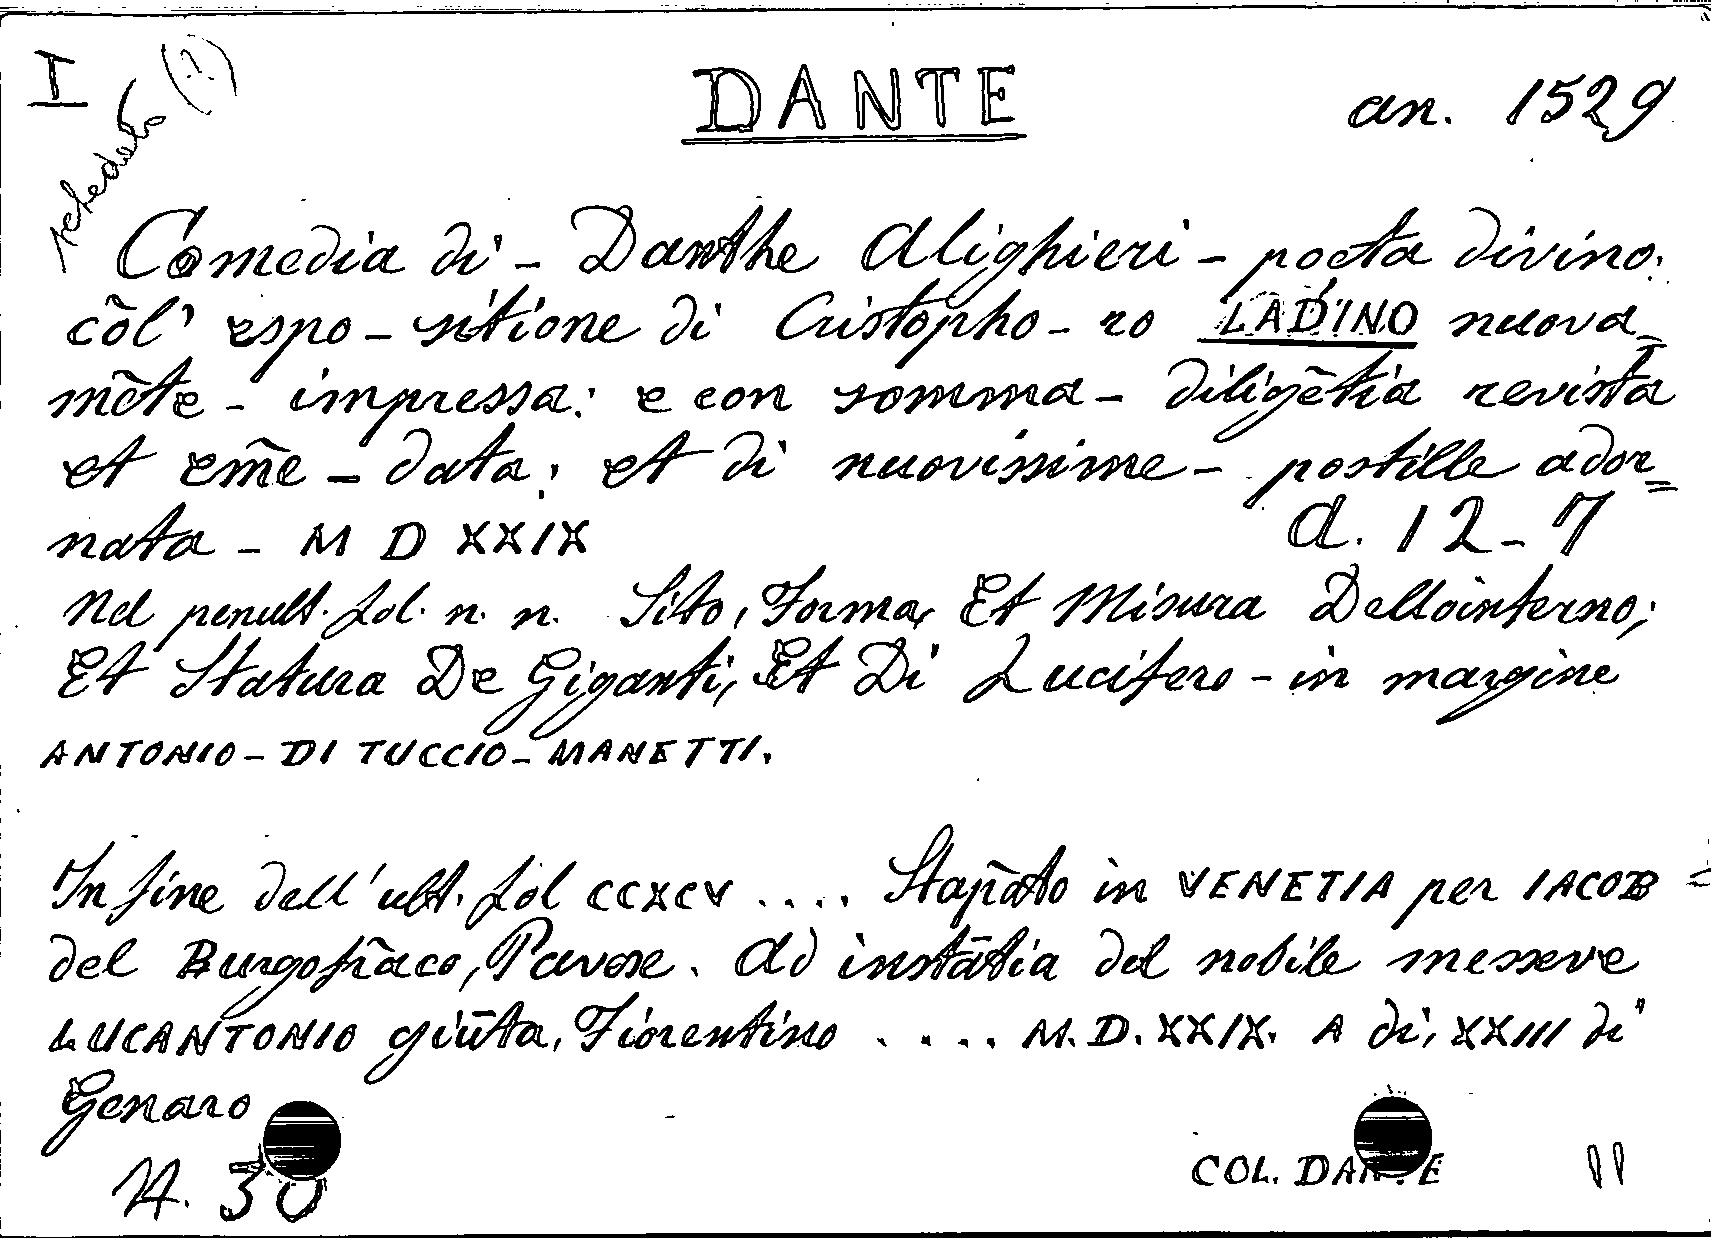 I
schedato (?)
DANTE
an. 1529
Comedia di - Danthe Alighieri - poeta divino:
cōl' espo - sitione di Cristopho - ro LADINO nuova_
mēte - impressa: e con somma - diligētia revista
et emē - data: et di nuovissime - postille ador_
nata - M D XXIX
d. 12-7
Nel penult. fol. n. n. Sito, Forma, Et Misura Dellointerno;
Et Statura De Giganti, Et Di Lucifero - in margine
ANTONIO - DI TUCCIO - MANETTI.
In fine dell' ult. fol CCXCV .... Stapāto in VENETIA per IACOB =
del Burgofrāco, Pavese. Ad instātia del nobile messere
LUCANTONIO giūta, Fiorentino .... M.D.XXIX. A di, XXIII di
Genaro
N. 30
COL. DANTE
11